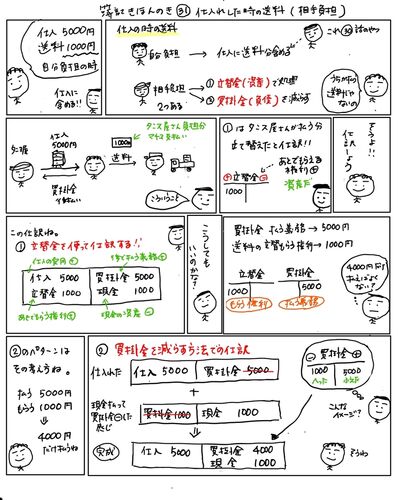 簿記きほんのき㉛ 仕入れした時の送料(相手負担)
仕入 5000円
送料 1000円
自分負担の時
仕入に
含める!!
仕入の時の送料
自分負担 → 仕入に送料分含める
これ㉚話のやつ
相手負担
2つある
① 立替金(資産)で処理
② 買掛金(負債)を減らす
うちがわの
送料じゃ
ないの
タンス屋さん負担分
1000円
仕入
5000円
タンス屋
送料
買掛金
こういうこと
①はタンス屋さんが払う分
立て替えたと仕訳!!
⊕ 立替金 ⊖
1000
あとでもらえる
権利⊕
資産だ
どうよ!!
仕訳しよう
この仕訳ね。
① 立替金を使って仕訳する!!
仕入の費用⊕
後で払う義務⊕
仕入 5000
買掛金 5000
立替金 1000
現金 1000
あとでもらう権利⊕
現金の資産⊖
こうしても
いいのかな?
買掛金 払う義務 → 5000円
送料の立替もらう権利 → 1000円
立替金
1000
買掛金
5000
もらう権利
払う義務
4000円だけ
払えばよく
ない?
②のパターンは
その考え方ね。
払う 5000円
もらう 1000円
↓
4000円
だけ払うね
② 買掛金を減らす方法での仕訳
仕入れた
仕入 5000
買掛金 5000
+
現金払って
買掛金⊖した
感じ
買掛金 1000
現金 1000
完成
仕入 5000
買掛金 4000
現金 1000
⊖ 買掛金 ⊕
1000
へった
5000
ふえた
こんな
イメージ?
そうね